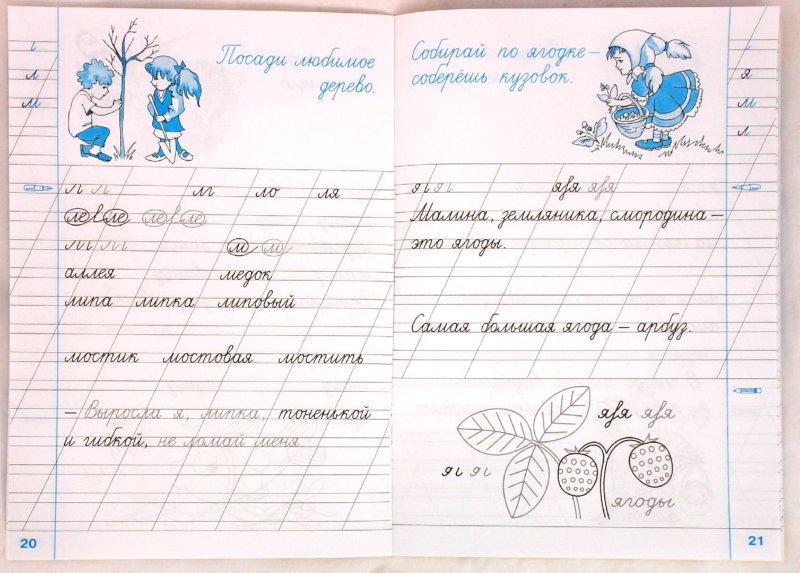 л
м
Посади любимое
дерево.
ле ле ле ле
м м
аллея медок
липа липка липовый
мостик мостовая мостить
– Выросла я, липка, тоненькой
и гибкой, не ломай меня
20
Собирай по ягодке –
соберёшь кузовок.
я
м
л
Малина, земляника, смородина –
это ягоды.
Самая большая ягода – арбуз.
ягоды
21